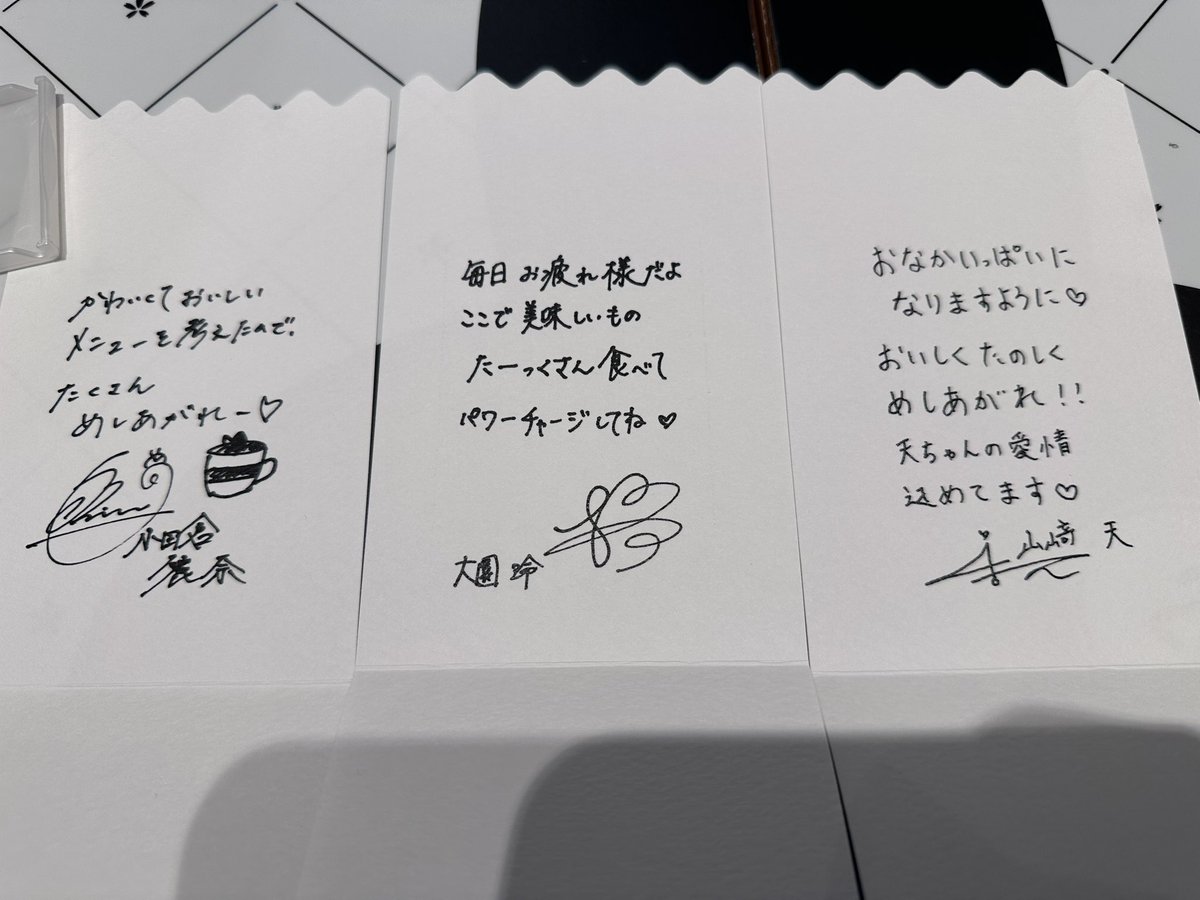 かわいくておいしい
メニューを考えたので、
たくさん
めしあがれー♡
小田倉
麗奈
毎日お疲れ様だよ
ここで美味しいもの
たーっくさん食べて
パワーチャージしてね♡
大園 玲
おなかいっぱいに
なりますように♡
おいしくたのしく
めしあがれ!!
天ちゃんの愛情
込めてます♡
山﨑 天